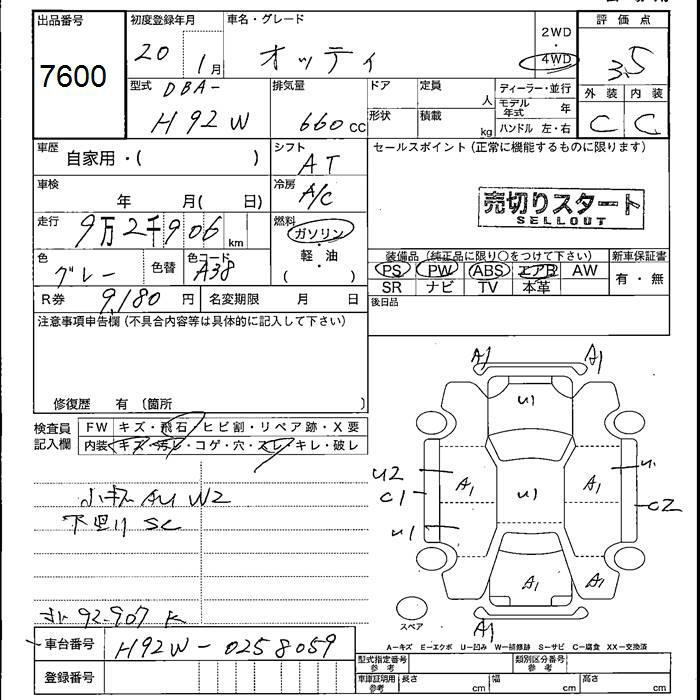 出品番号 初度登録年月 車名・グレード 2WD 評価点
7600 20 1月 オッティ ・ 4WD 3.5
型式 DBA- 排気量 ドア 定員 人 ディーラー・並行 外装 内装
H92W 660cc 形状 積載 kg モデル年式 年 C C
ハンドル 左・右
車歴 自家用・( ) シフト AT セールスポイント(正常に機能するものに限ります)
車検 年 月( 日) 冷房 A/C
売切りスタート
SELLOUT
走行 9万2千906km 燃料 ガソリン・軽油 ( )
色 グレー 色替 色コード A38
装備品(純正品に限り○をつけて下さい) 新車保証書
PS PW ABS エアB AW 有・無
SR ナビ TV 本革
R券 9,180円 名変期限 月 日 後日品
注意事項申告欄(不具合内容等は具体的に記入して下さい)
修復歴 有 (箇所
検査員記入欄 FW キズ・飛石・ヒビ割・リペア跡・X要
内装 キズ・汚レ・コゲ・穴・スレ・キレ・破レ
AU W2
下廻り SC
92.907 K
A1 A1
U1
U2 A1 U1 A1 U1
C1 C2
U1
A1 A1
スペア A1
A—キズ E—エクボ U—凹み W—補修跡 S—サビ C—腐食 XX—交換済
車台番号 H92W-0258059
型式指定番号 参考 類別区分番号 参考
登録番号 車庫証明用 参考 長さ cm 幅 cm 高さ cm